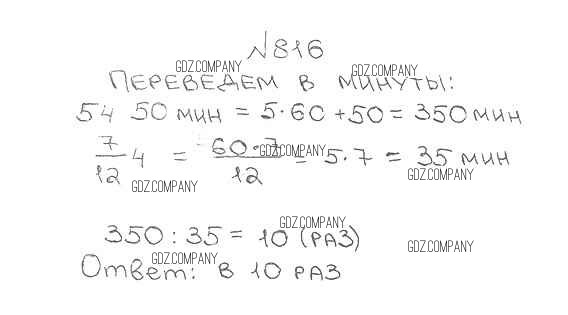 №816
GDZ.COMPANY
GDZ.COMPANY
ПЕРЕВЕДЕМ В МИНУТЫ:
5ч 50 мин = 5·60 + 50 = 350 мин
7/12 ч = 60·7/12 = 5·7 = 35 мин
GDZ.COMPANY
GDZ.COMPANY
GDZ.COMPANY
350 : 35 = 10 (РАЗ)
GDZ.COMPANY
GDZ.COMPANY
Ответ: в 10 РАЗ
GDZ.COMPANY